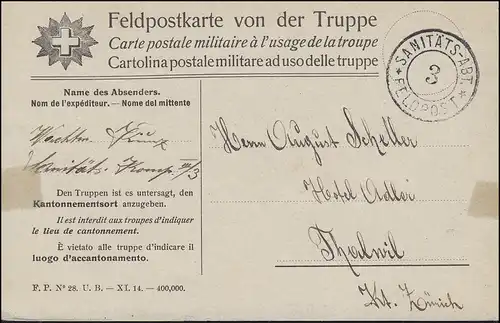 Feldpostkarte von der Truppe
Carte postale militaire à l'usage de la troupe
Cartolina postale militare ad uso delle truppe
SANITÄTS-ABT.
3
* FELDPOST *
Name des Absenders.
Nom de l'expéditeur. — Nome del mittente
Sanitäts. Komp. III/3
Den Truppen ist es untersagt, den
Kantonnementsort anzugeben.
Il est interdit aux troupes d'indiquer
le lieu de cantonnement.
È vietato alle truppe d'indicare il
luogo d'accantonamento.
F. P. Nº 28. U. B. — XI. 14. — 400,000.
Herrn August Scheller
Hotel Adler
Thalwil
Kt. Zürich